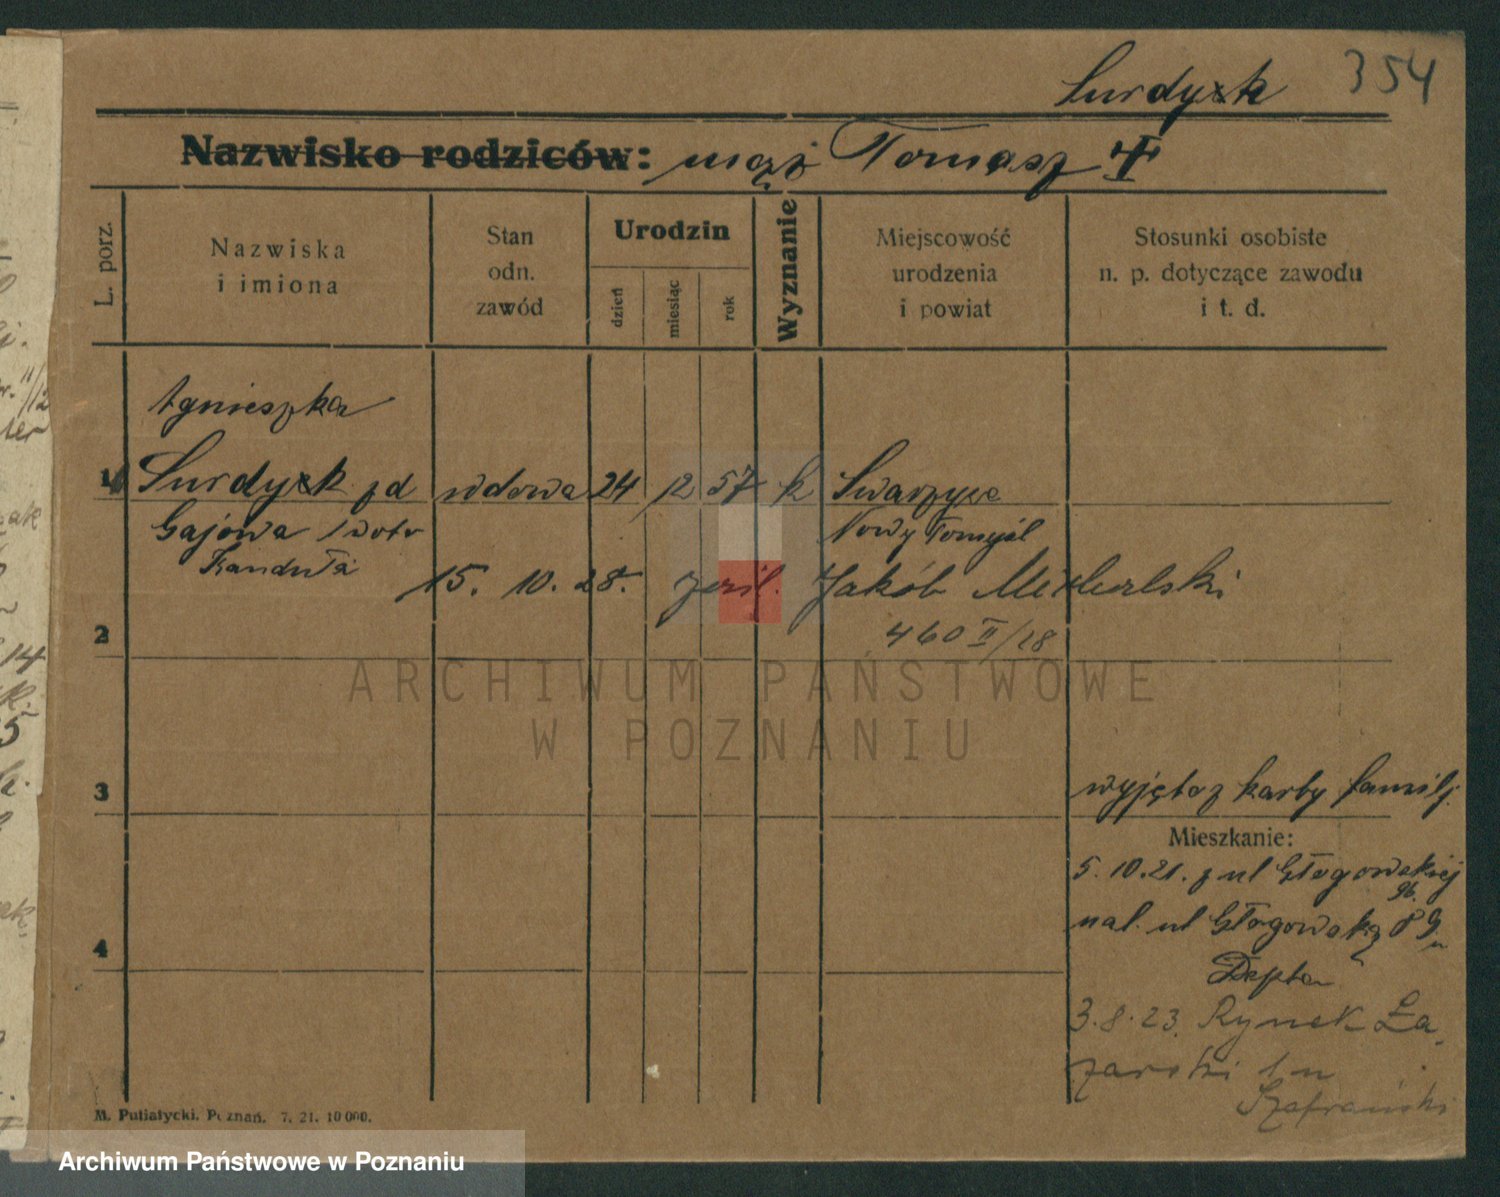 Surdyk 354
Nazwisko rodziców: mąż Tomasz
L. porz.
Nazwiska
i imiona
Stan
odn.
zawód
Urodzin
dzień
miesiąc
rok
Wyznanie
Miejscowość
urodzenia
i powiat
Stosunki osobiste
n. p. dotyczące zawodu
i t. d.
Agnieszka
1 Surdyk zd wdowa 24 12 57 k
Gajowa 1 voto Nowy Tomyśl
Kanduła
15. 10. 28. Jakób
2 460 II/28
ARCHIWUM PAŃSTWOWE
W POZNANIU
3 wyjęta z karty familj.
Mieszkanie:
5. 10. 21. z ul Głogowskiej
4 na ul Głogowską
Depta
3. 8. 23. Rynek Ła
zarski 1 u
Szafrański
M. Putiatycki. Poznań. 7. 21. 10 000.
Archiwum Państwowe w Poznaniu